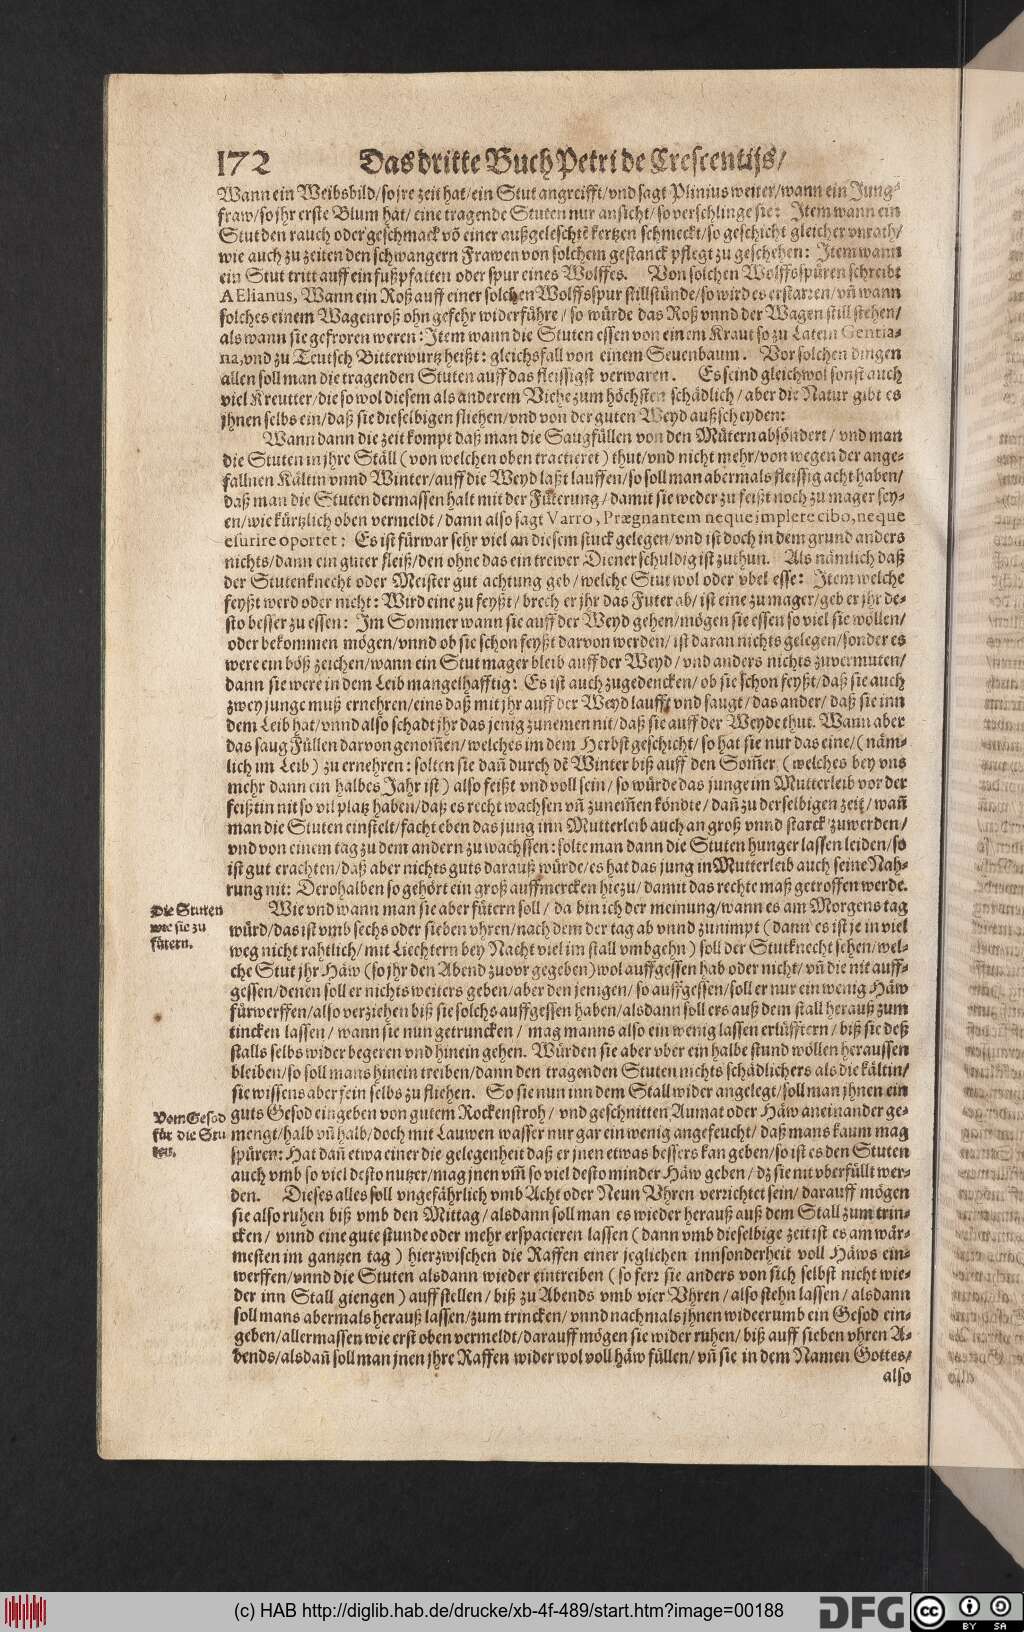 172 Das dritte Buch Petri de Crescentijs/
Wann ein Weibsbild/so jre zeit hat/ein Stut angreifft/vnd sagt Plinius weiter/wann ein Jung-
fraw/so jhr erste Blum hat/eine tragende Stuten nur ansicht/so verschlinge sie: Item wann ein
Stut den rauch oder geschmack võ einer außgeleschtẽ kertzen schmeckt/so geschicht gleicher vnrath/
wie auch zu zeiten den schwangern Frawen von solchem gestanck pflegt zu geschehen: Item wann
ein Stut tritt auff ein fußpfatten oder spur eines Wolffes. Von solchen Wolffsspüren schreibt
AElianus, Wann ein Roß auff einer solchen Wolffsspur stillstünde/so wird es erstarren/vñ wann
solches einem Wagenroß ohn gefehr widerführe/so würde das Roß vnnd der Wagen still stehen/
als wann sie gefroren weren: Item wann die Stuten essen von einem Kraut so zu Latein Gentia-
na, vnd zu Teutsch Bitterwurtz heißt: gleichsfall von einem Sevenbaum. Vor solchen dingen
allen soll man die tragenden Stuten auff das fleissigst verwaren. Es seind gleichwol sonst auch
viel Kreutter/die so wol diesem als anderem Viehe zum höchsten schädlich/aber die Natur gibt es
jhnen selbs ein/daß sie dieselbigen fliehen/vnd von der guten Weyd außscheyden:
Wann dann die zeit kompt daß man die Saugfüllen von den Mütern absöndert/vnd man
die Stuten in jhre Ställ (von welchen oben tractieret) thut/vnd nicht mehr/von wegen der ange-
fallnen Kältin vnnd Winter/auff die Weyd laßt lauffen/so soll man abermals fleissig acht haben/
daß man die Stuten dermassen halt mit der Fütterung/damit sie weder zu feißt noch zu mager sey-
en/wie kürtzlich oben vermeldt/dann also sagt Varro, Prægnantem neque implete cibo, neque
esurire oportet: Es ist fürwar sehr viel an diesem stuck gelegen/vnd ist doch in dem grund anders
nichts/dann ein guter fleiß/den ohne das ein trewer Diener schuldig ist zuthun. Als nämlich daß
der Stutenknecht oder Meister gut achtung geb/welche Stut wol oder vbel esse: Item welche
feyßt werd oder nicht: Wird eine zu feyßt/brech er jhr das Futer ab/ist eine zu mager/geb er jhr de-
sto besser zu essen: Im Sommer wann sie auff der Weyd gehen/mögen sie essen so viel sie wöllen/
oder bekommen mögen/vnnd ob sie schon feyßt darvon werden/ist daran nichts gelegen/sonder es
were ein böß zeichen/wann ein Stut mager bleib auff der Weyd/vnd anders nichts zuvermuten/
dann sie were in dem Leib mangelhafftig: Es ist auch zugedencken/ob sie schon feyßt/daß sie auch
zwey junge muß ernehren/eins daß mit jhr auff der Weyd laufft vnd saugt/das ander/daß sie inn
dem Leib hat/vnnd also schadt jhr das jenig zunemen nit/daß sie auff der Weyde thut. Wann aber
das saug Füllen darvon genom̃en/welches im dem Herbst geschicht/so hat sie nur das eine/(näm-
lich im Leib) zu ernehren: solten sie dañ durch dẽ Winter biß auff den Som̃er (welches bey vns
mehr dann ein halbes Jahr ist) also feißt vnd voll sein/so würde das junge im Mutterleib vor der
feißtin nit so vil platz haben/daß es recht wachsen vñ zunem̃en köndte/dañ zu derselbigen zeit/wañ
man die Stuten einstelt/facht eben das jung inn Mutterleib auch an groß vnnd starck zuwerden/
vnd von einem tag zu dem andern zu wachssen: solte man dann die Stuten hunger lassen leiden/so
ist gut erachten/daß aber nichts guts darauß würde/es hat das jung in Mutterleib auch seine Nah-
rung nit: Derohalben so gehört ein groß auffmercken hiezu/damit das rechte maß getroffen werde.
Die Stuten
wie sie zu
fütern.
Wie vnd wann man sie aber fütern soll/da bin ich der meinung/wann es am Morgens tag
würd/das ist vmb sechs oder sieben vhren/nach dem der tag ab vnnd zunimpt (dann es ist je in viel
weg nicht rahtlich/mit Liechtern bey Nacht viel im stall vmbgehn) soll der Stutknecht sehen/wel-
che Stut jhr Häw (so jhr den Abend zuovr gegeben) wol auffgessen hab oder nicht/vñ die nit auff-
gessen/denen soll er nichts weiters geben/aber den jenigen/so auffgessen/soll er nur ein wenig Häw
fürwerffen/also verziehen biß sie solchs auffgessen haben/alsdann soll ers auß dem stall herauß zum
tincken lassen/wann sie nun getruncken/mag manns also ein wenig lassen erlüfftern/biß sie deß
stalls selbs wider begeren vnd hinein gehen. Würden sie aber vber ein halbe stund wöllen heraussen
bleiben/so soll mans hinein treiben/dann den tragenden Stuten nichts schädlichers als die kältin/
sie wissens aber fein selbs zu fliehen. So sie nun inn dem Stall wider angelegt/soll man jhnen ein
Vom Gesod
für die Stu
ten.
guts Gesod eingeben von gutem Rockenstroh/vnd geschnitten Aumat oder Häw aneinander ge-
mengt/halb vñ halb/doch mit Lauwen wasser nur gar ein wenig angefeucht/daß mans kaum mag
spüren: Hat dañ etwa einer die gelegenheit daß er jnen etwas bessers kan geben/so ist es den Stuten
auch vmb so viel desto nutzer/mag jnen vm̃ so viel desto minder Häw geben/dz sie nit vberfüllt wer-
den. Dieses alles soll vngefährlich vmb Acht oder Neun Vhren verrichtet sein/darauff mögen
sie also ruhen biß vmb den Mittag/alsdann soll man es wieder herauß auß dem Stall zum trin-
cken/vnnd eine gute stunde oder mehr erspacieren lassen (dann vmb dieselbige zeit ist es am wär-
mesten im gantzen tag) hierzwischen die Raffen einer jeglichen innsonderheit voll Häws ein-
werffen/vnnd die Stuten alsdann wieder eintreiben (so ferr sie anders von sich selbst nicht wie-
der inn Stall giengen) auff stellen/biß zu Abends vmb vier Vhren/also stehn lassen/alsdann
soll mans abermals herauß lassen/zum trincken/vnnd nachmals jhnen wideerumb ein Gesod ein-
geben/allermassen wie erst oben vermeldt/darauff mögen sie wider ruhen/biß auff sieben vhren A-
bends/alsdañ soll man jnen jhre Raffen wider wol voll häw füllen/vñ sie in dem Namen Gottes/
also
(c) HAB http://diglib.hab.de/drucke/xb-4f-489/start.htm?image=00188
DFG
cc BY SA